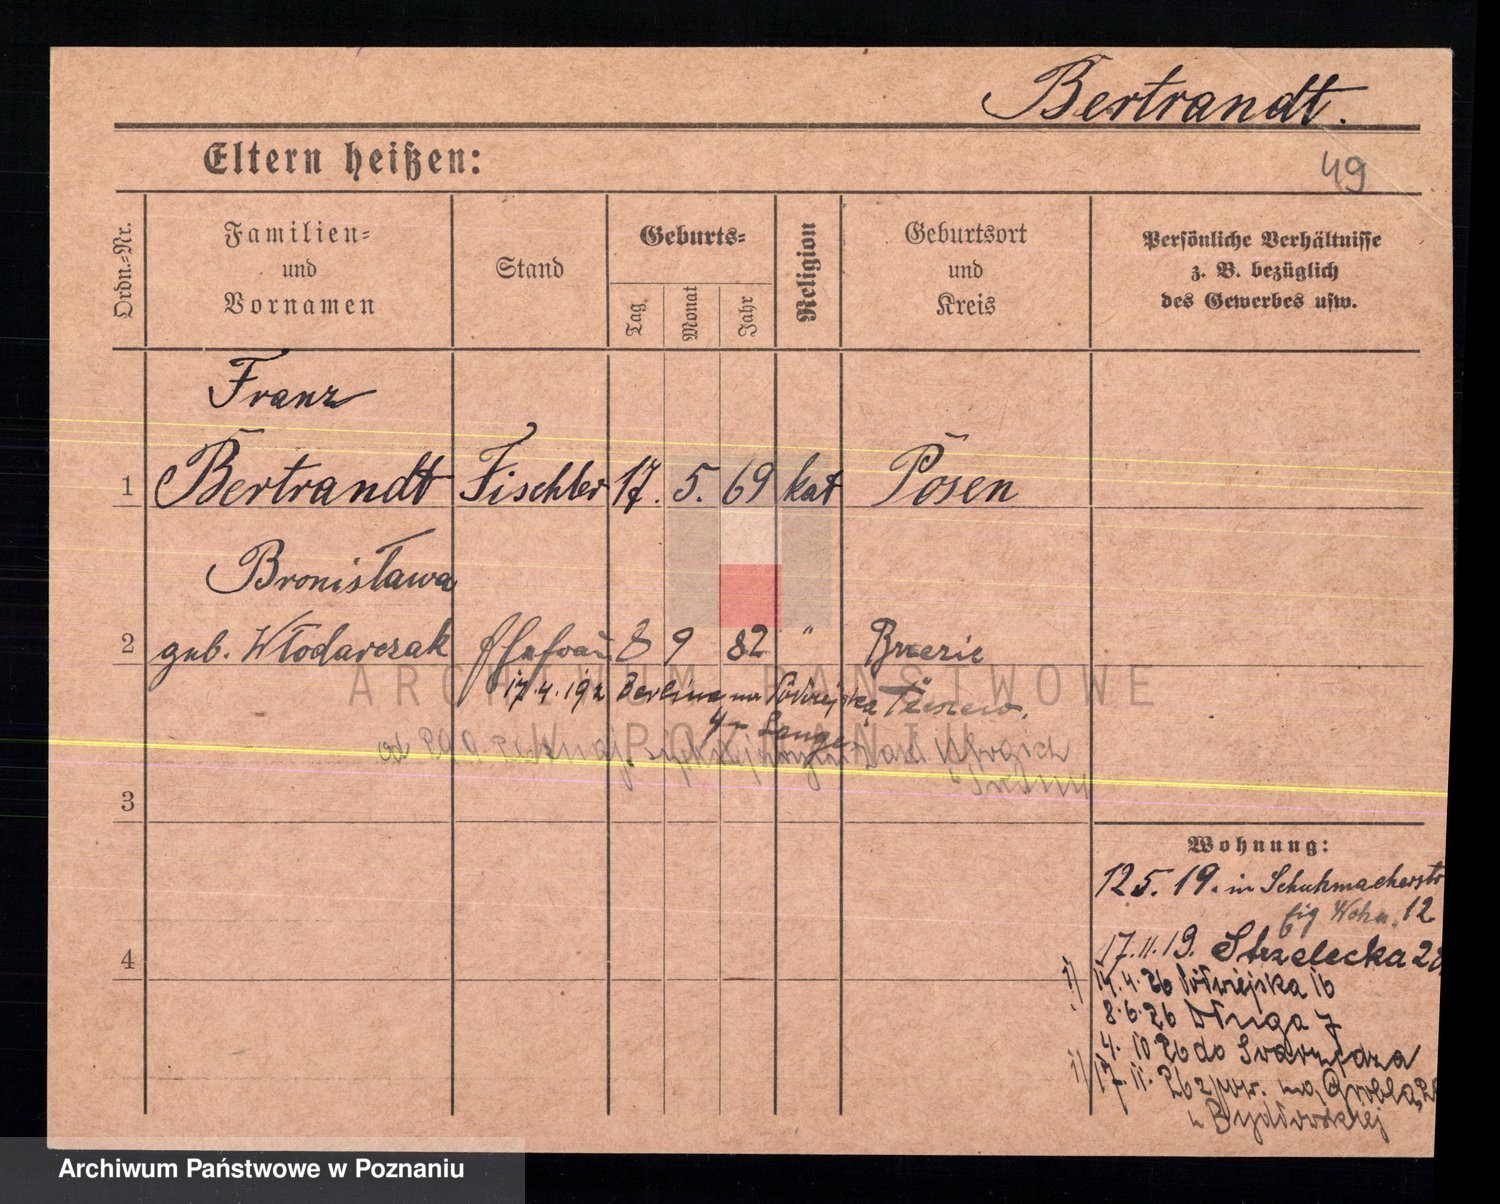 Bertrandt.
Eltern heißen:
49
Ordn.-Nr.
Familien-
und
Vornamen
Stand
Geburts-
Tag
Monat
Jahr
Religion
Geburtsort
und
Kreis
Persönliche Verhältnisse
z. B. bezüglich
des Gewerbes usw.
Franz
1 Bertrandt Tischler 17. 5. 69 kat Posen
Bronisława
2 geb. Włodarczak Ehefrau 8 9 82 " Brzezie
17.4.192 Berlina na Półwiejską
Pleszew.
u Lange
od
3
4
Wohnung:
12 5. 19. in Schuhmacherstr
12
17.11.19. Strzelecka 28
1) 14.4.26 Półwiejska 16
8.6.26 Długa 7
4. 10 26 do Swarzędza
1) 17.11.26 z pow. na Grobla
u Bydłowskiej
ARCHIWUM PAŃSTWOWE
W POZNANIU
Archiwum Państwowe w Poznaniu